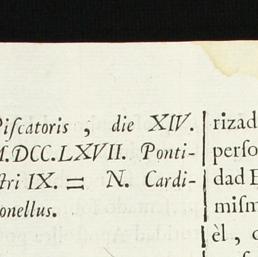 Piſcatoris , die XIV.
M.DCC.LXVII. Ponti-
ſtri IX. = N. Cardi-
onellus.
rizad
perſo
dad E
miſm
èl , c